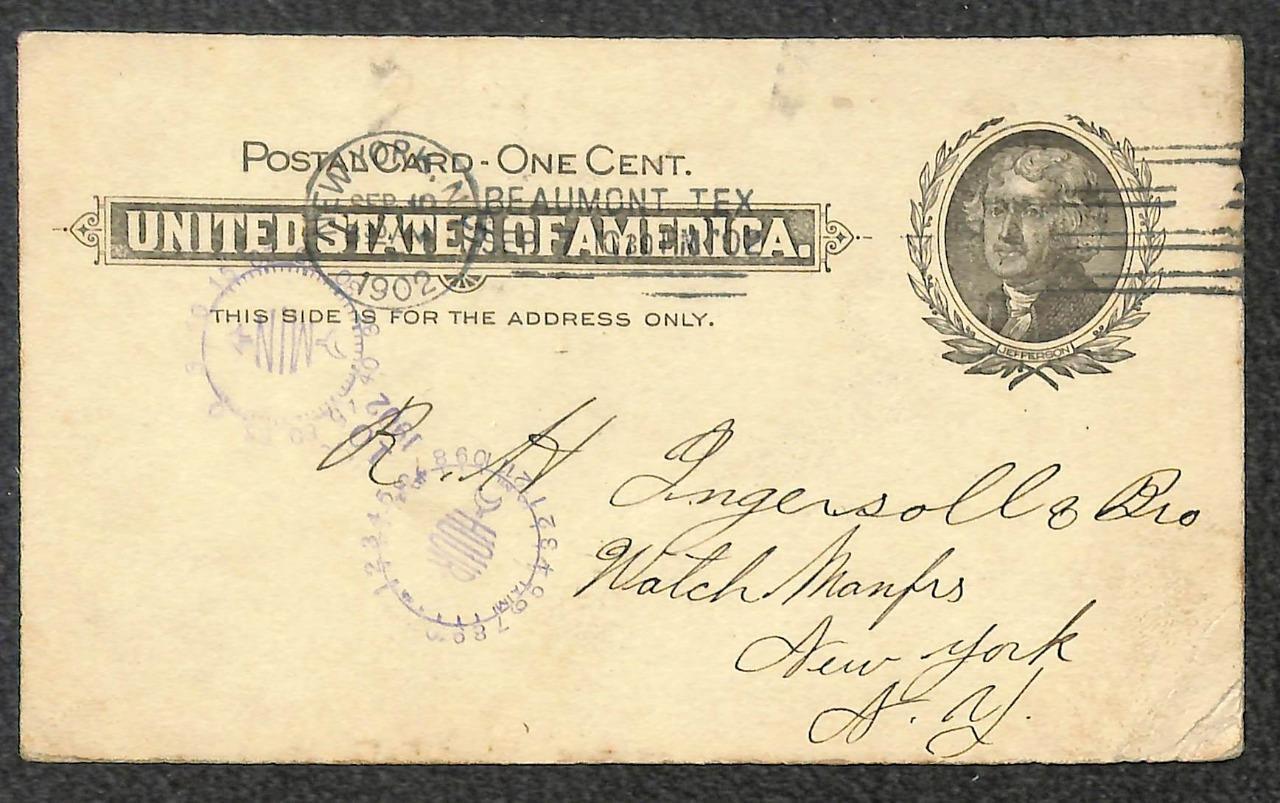 POSTAL CARD - ONE CENT.
NEW YORK, N.Y.
SEP 10
1902
BEAUMONT TEX
SEP 7 1030 PM '02
UNITED STATES OF AMERICA.
THIS SIDE IS FOR THE ADDRESS ONLY.
JEFFERSON
MIN
1902
HOUR
R. H Ingersoll & Bro
Watch Manfrs
New York
N. Y.